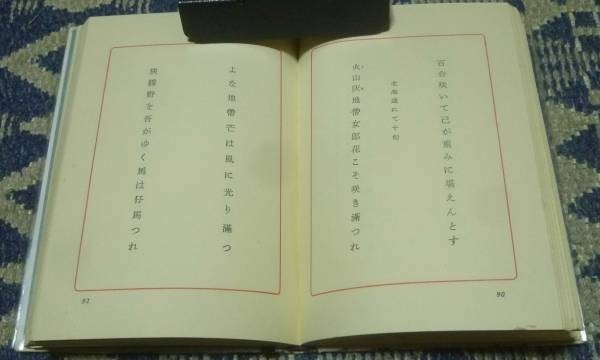 百合咲いて已が重みに堪えんとす
北海道にて十句
火山灰地帶女郎花こそ咲き滿つれ
よな
90
よな地帶芒は風に光り滿つ
狹霧野を吾がゆく馬は仔馬つれ
91